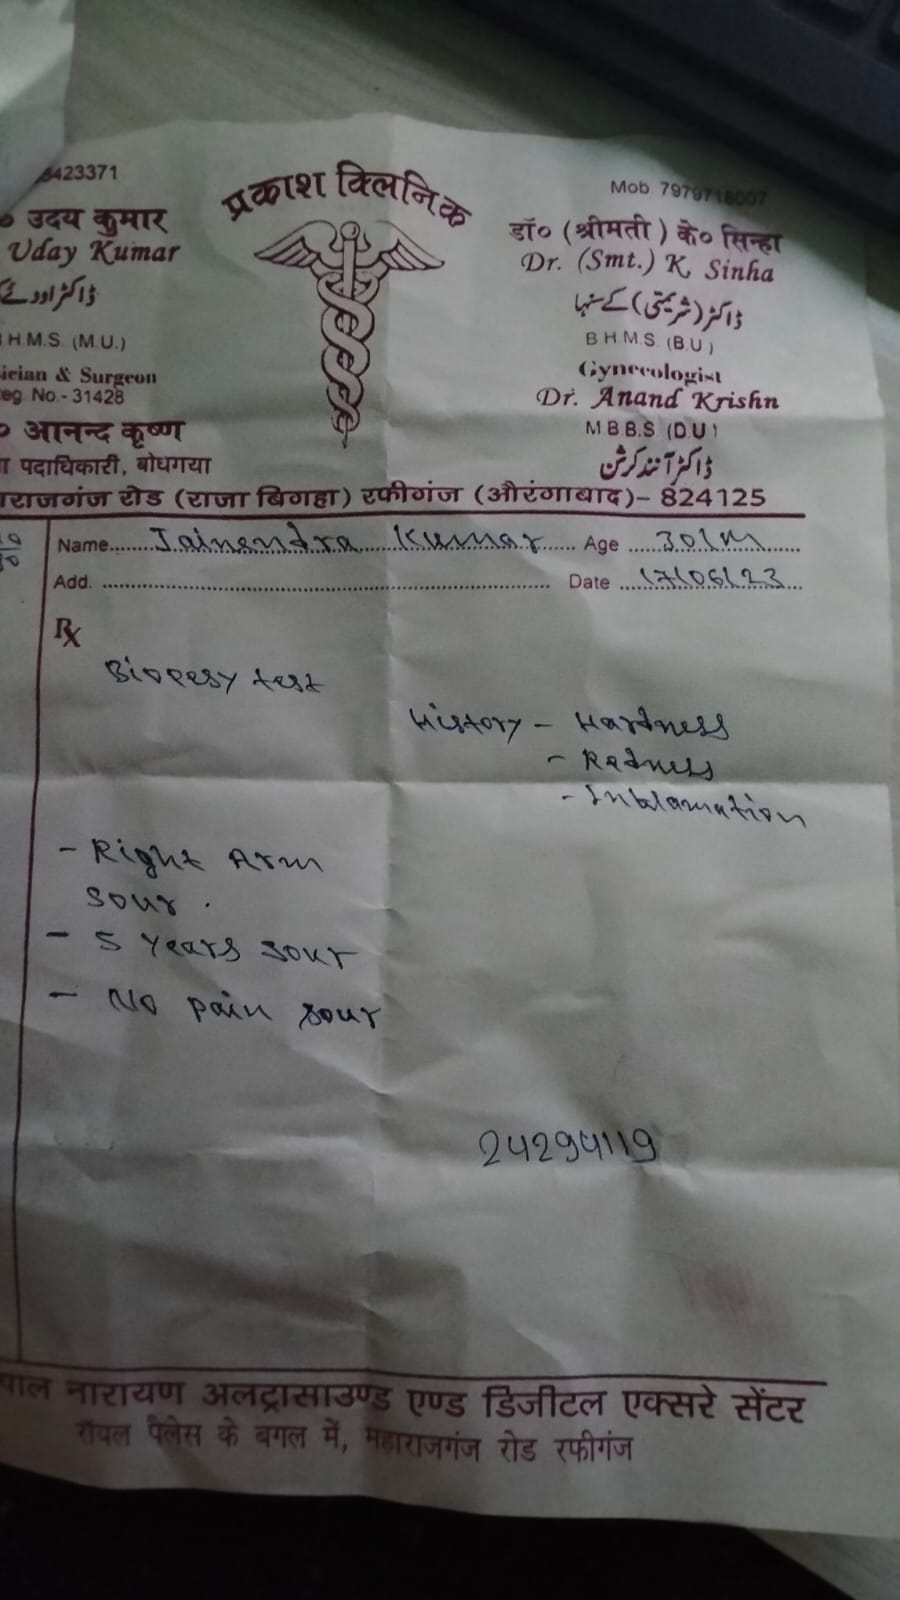 423371
प्रकाश क्लिनिक
Mob 7979718007
उदय कुमार
Uday Kumar
H.M.S. (M.U.)
ician & Surgeon
eg. No.- 31428
आनन्द कृष्ण
पदाधिकारी, बोधगया
डॉ० (श्रीमती) के० सिन्हा
Dr. (Smt.) K. Sinha
ڈاکٹر (شریمتی) کے سنہا
B.H.M.S. (B.U.)
Gynecologist
Dr. Anand Krishn
M.B.B.S. (D.U)
ڈاکٹر آنند کرشن
राजगंज रोड (राजा बिगहा) रफीगंज (औरंगाबाद)- 824125
Name Jainendra Kumar Age 30/M
Add. Date 17/06/23
Rx
Biopesy test
History - Hardness
- Redness
- Inblamation
- Right Arm
sour.
- 5 years sour
- No pain sour
24294119
पाल नारायण अल्ट्रासाउण्ड एण्ड डिजीटल एक्सरे सेंटर
रॉयल पैलेस के बगल में, महाराजगंज रोड रफीगंज